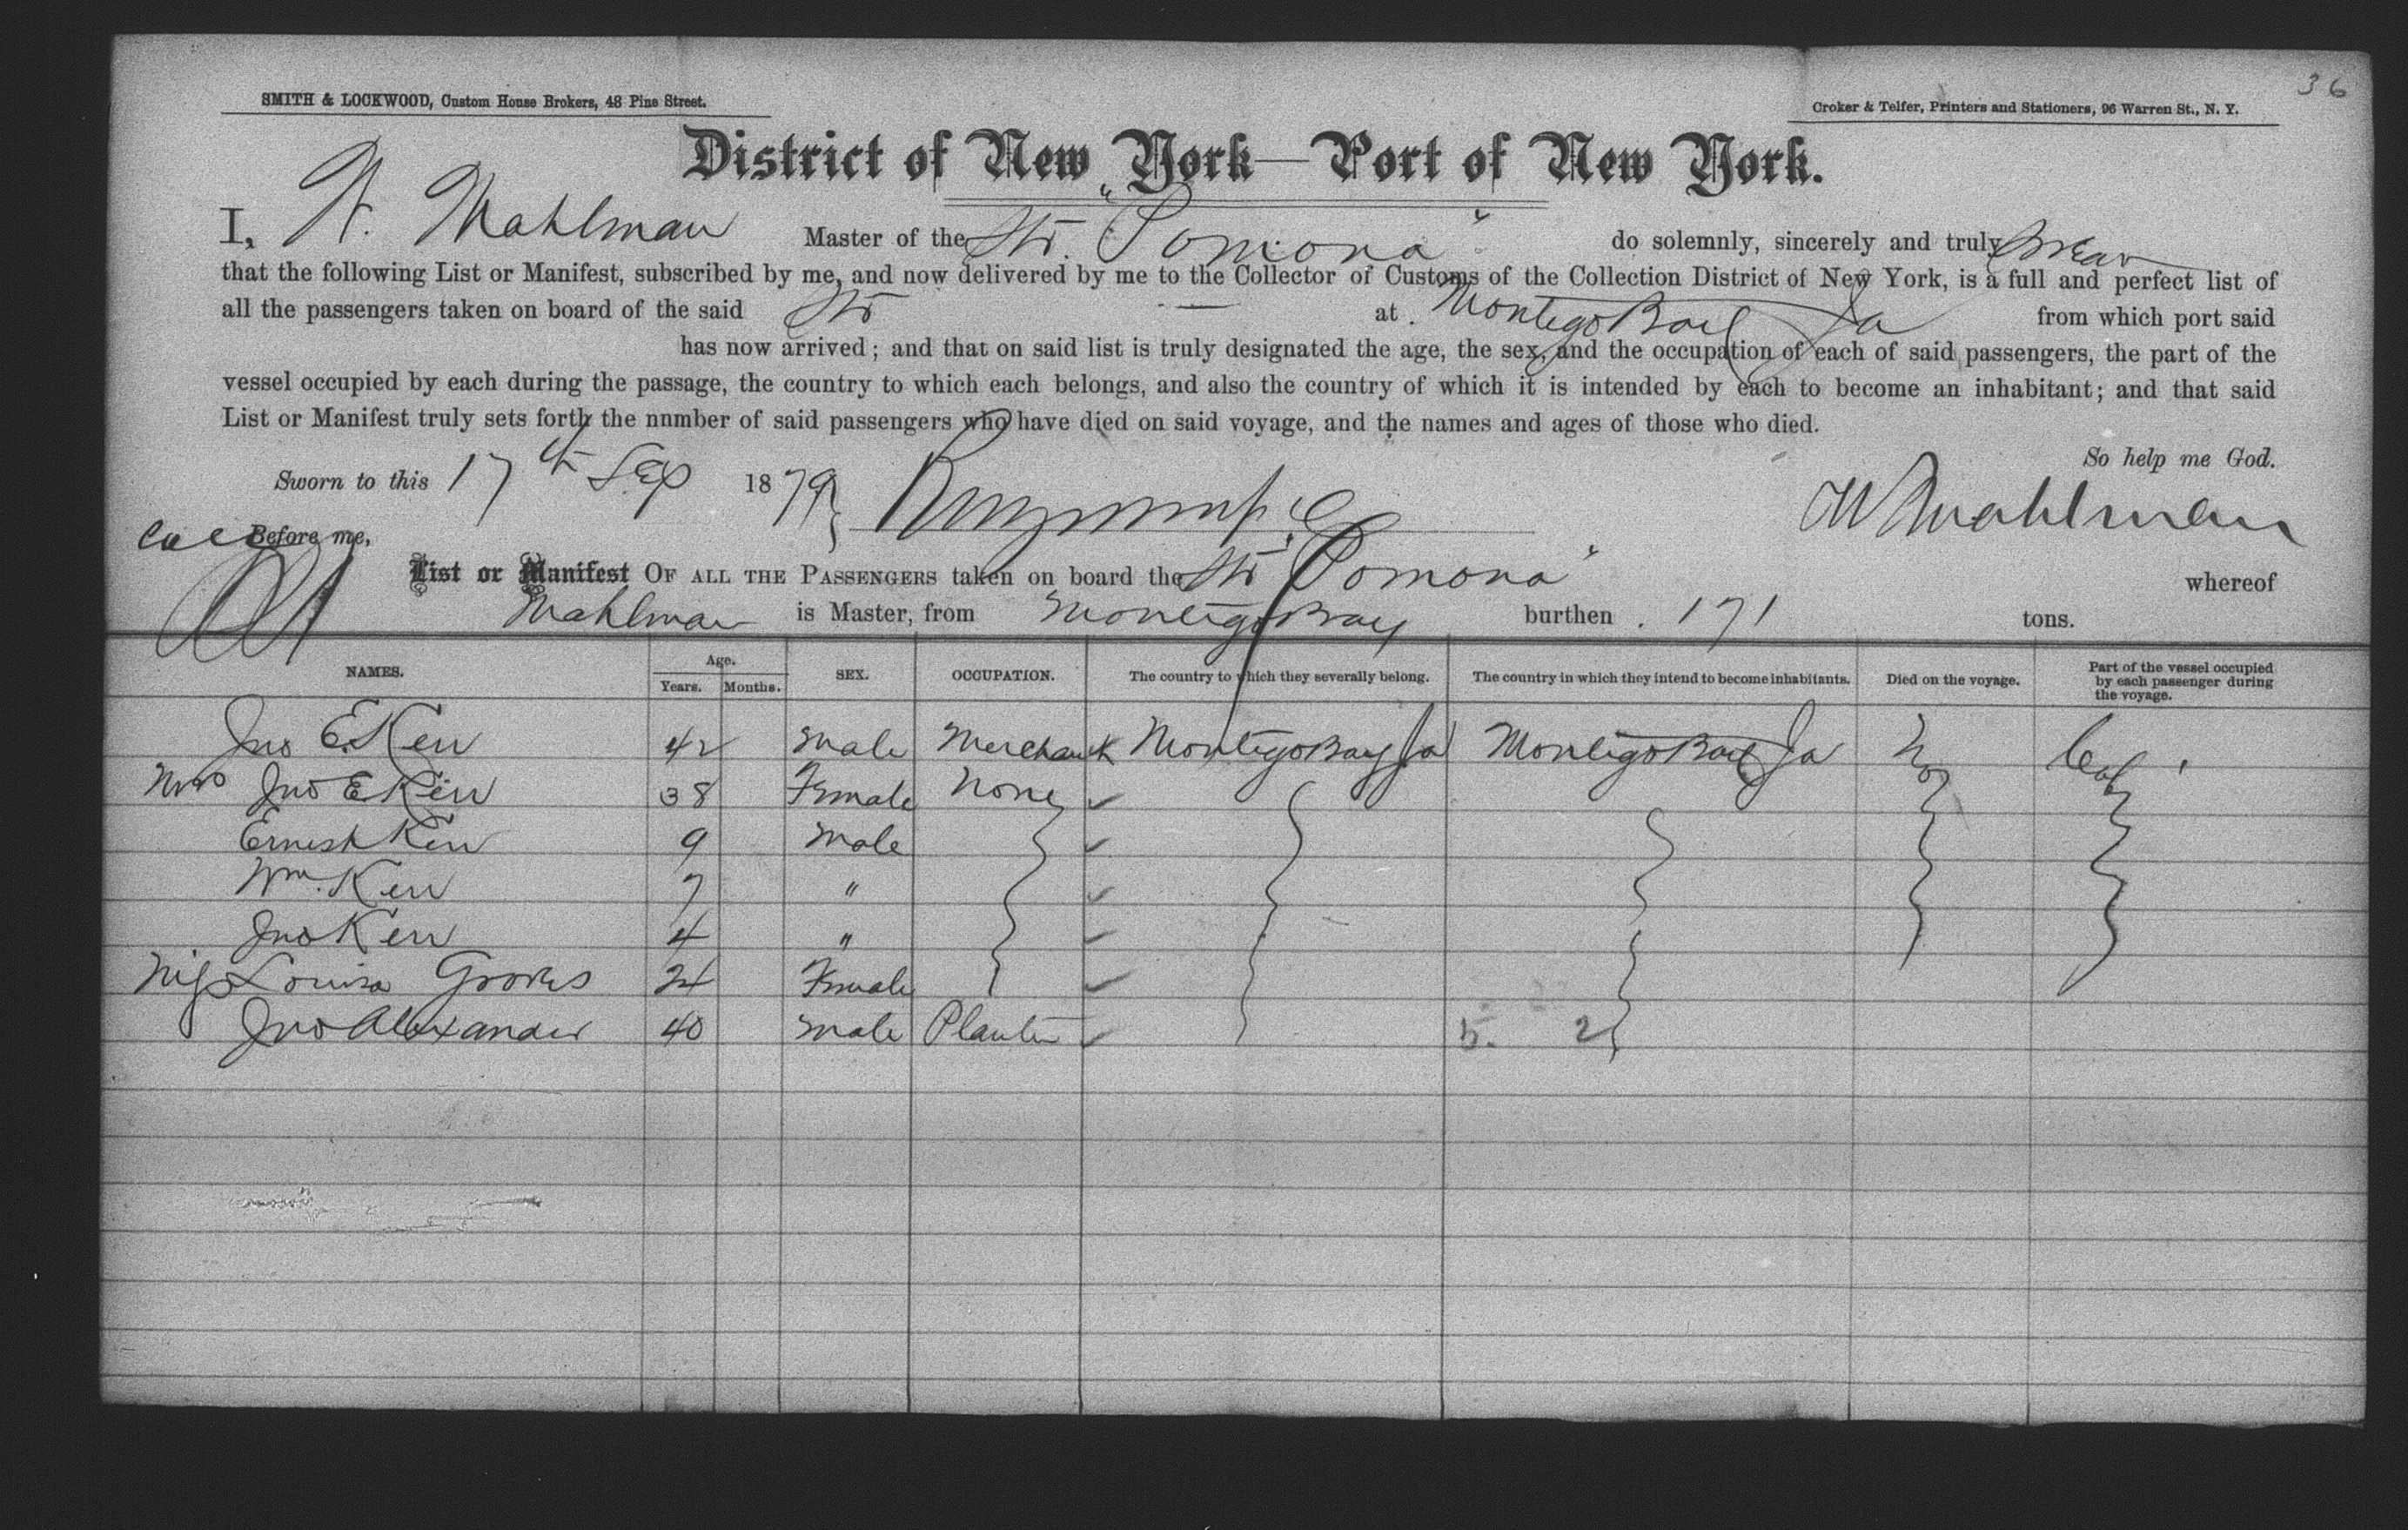 36
SMITH & LOCKWOOD, Custom House Brokers, 48 Pine Street.
Croker & Telfer, Printers and Stationers, 96 Warren St., N. Y.
District of New York—Port of New York.
I, W. Mahlman Master of the Str. "Pomona" do solemnly, sincerely and truly swear
that the following List or Manifest, subscribed by me, and now delivered by me to the Collector of Customs of the Collection District of New York, is a full and perfect list of
all the passengers taken on board of the said Str — at Montego Bay Ja from which port said
has now arrived; and that on said list is truly designated the age, the sex, and the occupation of each of said passengers, the part of the
vessel occupied by each during the passage, the country to which each belongs, and also the country of which it is intended by each to become an inhabitant; and that said
List or Manifest truly sets forth the nnmber of said passengers who have died on said voyage, and the names and ages of those who died.
So help me God.
Sworn to this 17th Sep 1879 W Mahlman
Before me,
List or Manifest OF ALL THE PASSENGERS taken on board the Str "Pomona" whereof
Mahlman is Master, from Montego Bay burthen 171 tons.
NAMES. Age. Years. Months. SEX. OCCUPATION. The country to which they severally belong. The country in which they intend to become inhabitants. Died on the voyage. Part of the vessel occupied by each passenger during the voyage.
Jno E. Kerr 42 Male Merchant Montego Bay Ja Montego Bay Ja No
Mrs Jno E Kerr 38 Female None
Ernest Kerr 9 Male
Wm. Kerr 7 "
Jno Kerr 4 "
Miss Louisa Groves 24 Female
Jno Alexander 40 Male Planter 5. 2